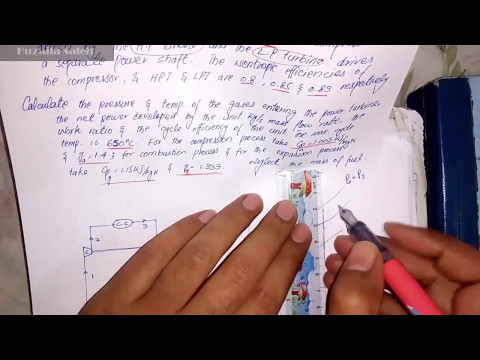 Huzaifa Saleh
driven by the H.P turbine and the LP turbine drives
a separate power shaft. The isentropic efficiencies of
the compressor, & HPT & LPT are 0.8, 0.85 & 0.83 respectively
Calculate the pressure & temp. of the gases entering the power turbine
the net power developed by the unit kg/s mass flow rate. the
work ratio & the cycle efficiency of the unit the max. cycle
temp. is 650°C For the compression process take Cp = 1.005 kJ/kgK
& = 1.4 ; for combustion process & for the expansion process
take Cpg = 1.15 kJ/kgK & = 1.333. Neglect the mass of fuel
P2 = P3
C.C
2
3
C
1